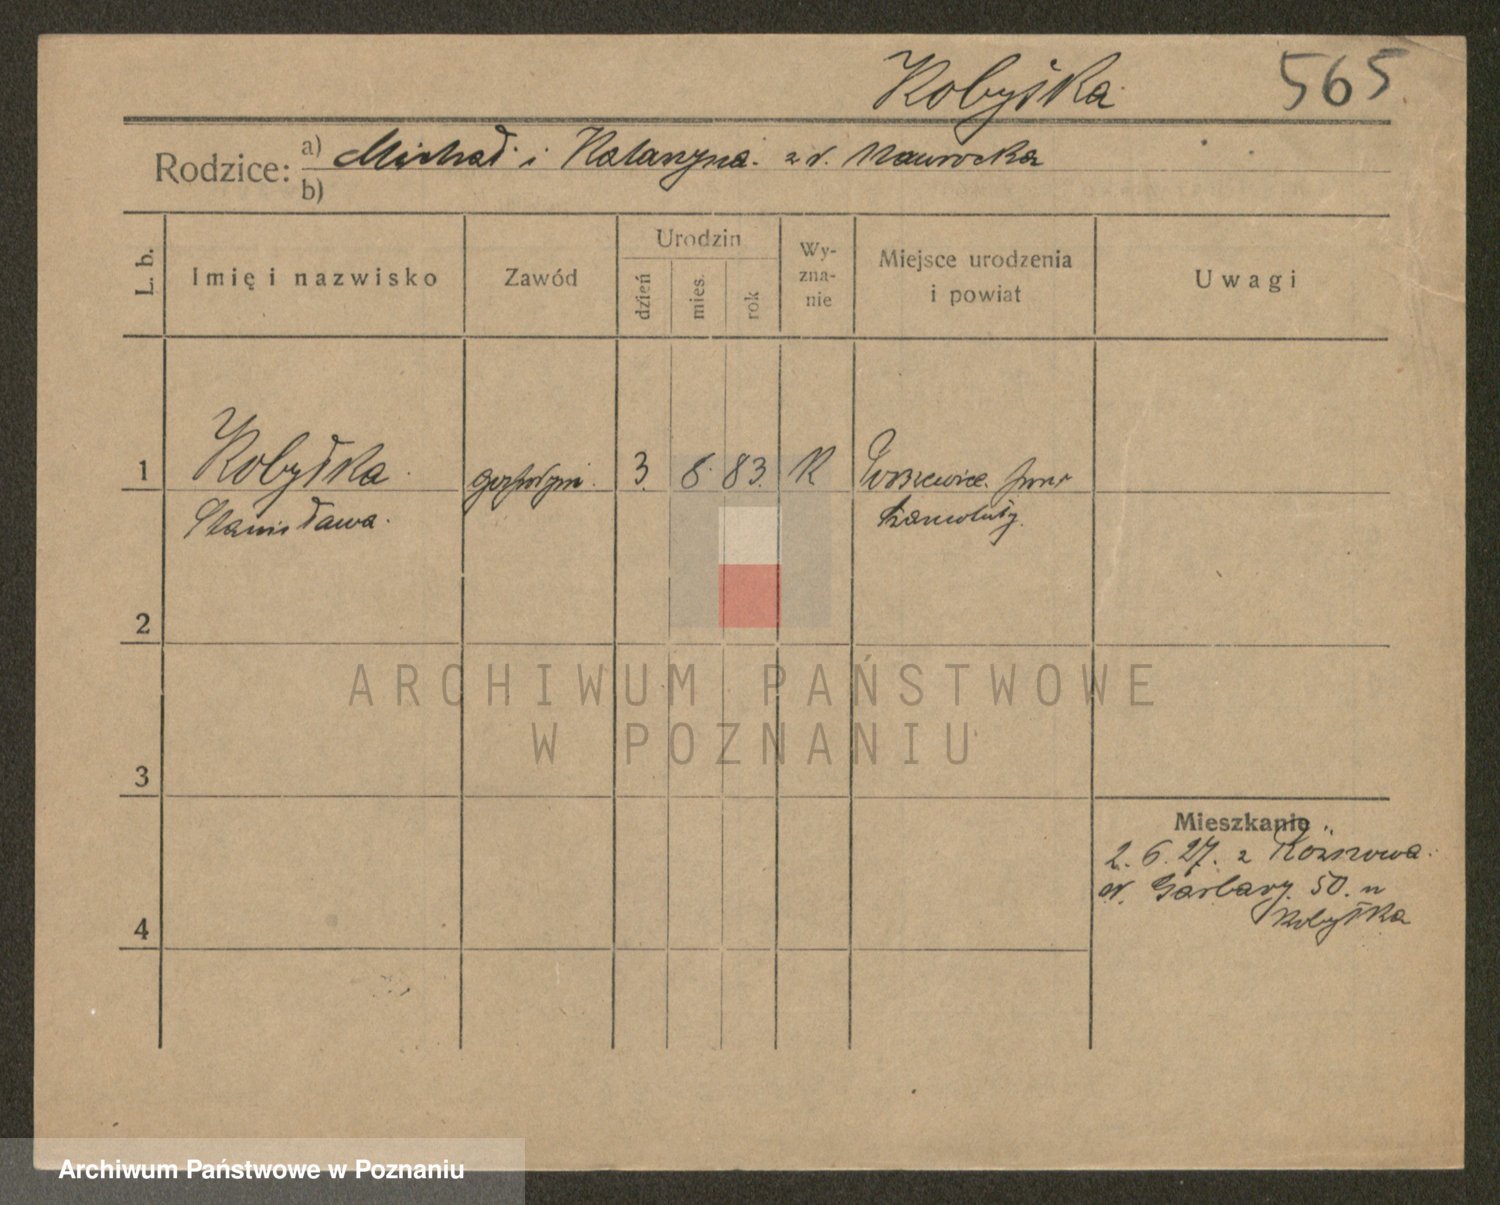 Kobyłka 565
Rodzice: a) Michał i Katarzyna z d. Nawrocka
b)
L. b.
Imię i nazwisko
Zawód
Urodzin
dzień
mies.
rok
Wy-
zna-
nie
Miejsce urodzenia
i powiat
Uwagi
1 Kobyłka gospodyni. 3. 8. 83. K
Stanisława.
2
3
4
Mieszkanie
2. 6. 27. z Rożnowa.
Garbary 50. u
Kobyłka
ARCHIWUM PAŃSTWOWE
W POZNANIU
Archiwum Państwowe w Poznaniu